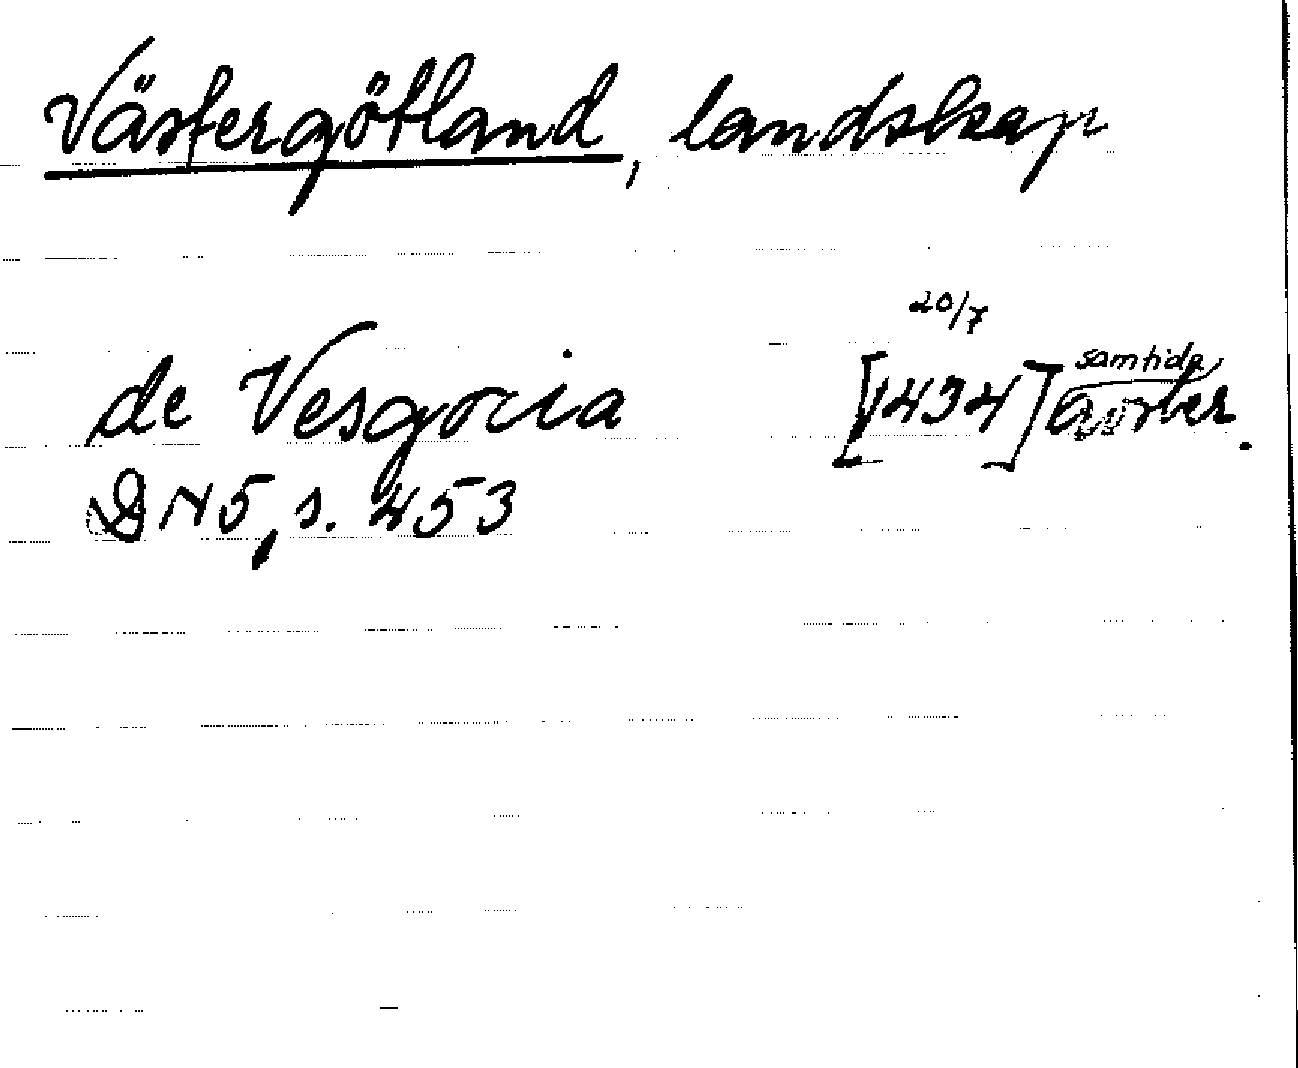 Västergötland, landskap
20/7
de Vesgocia [1434] samtida
DN 5, s. 453